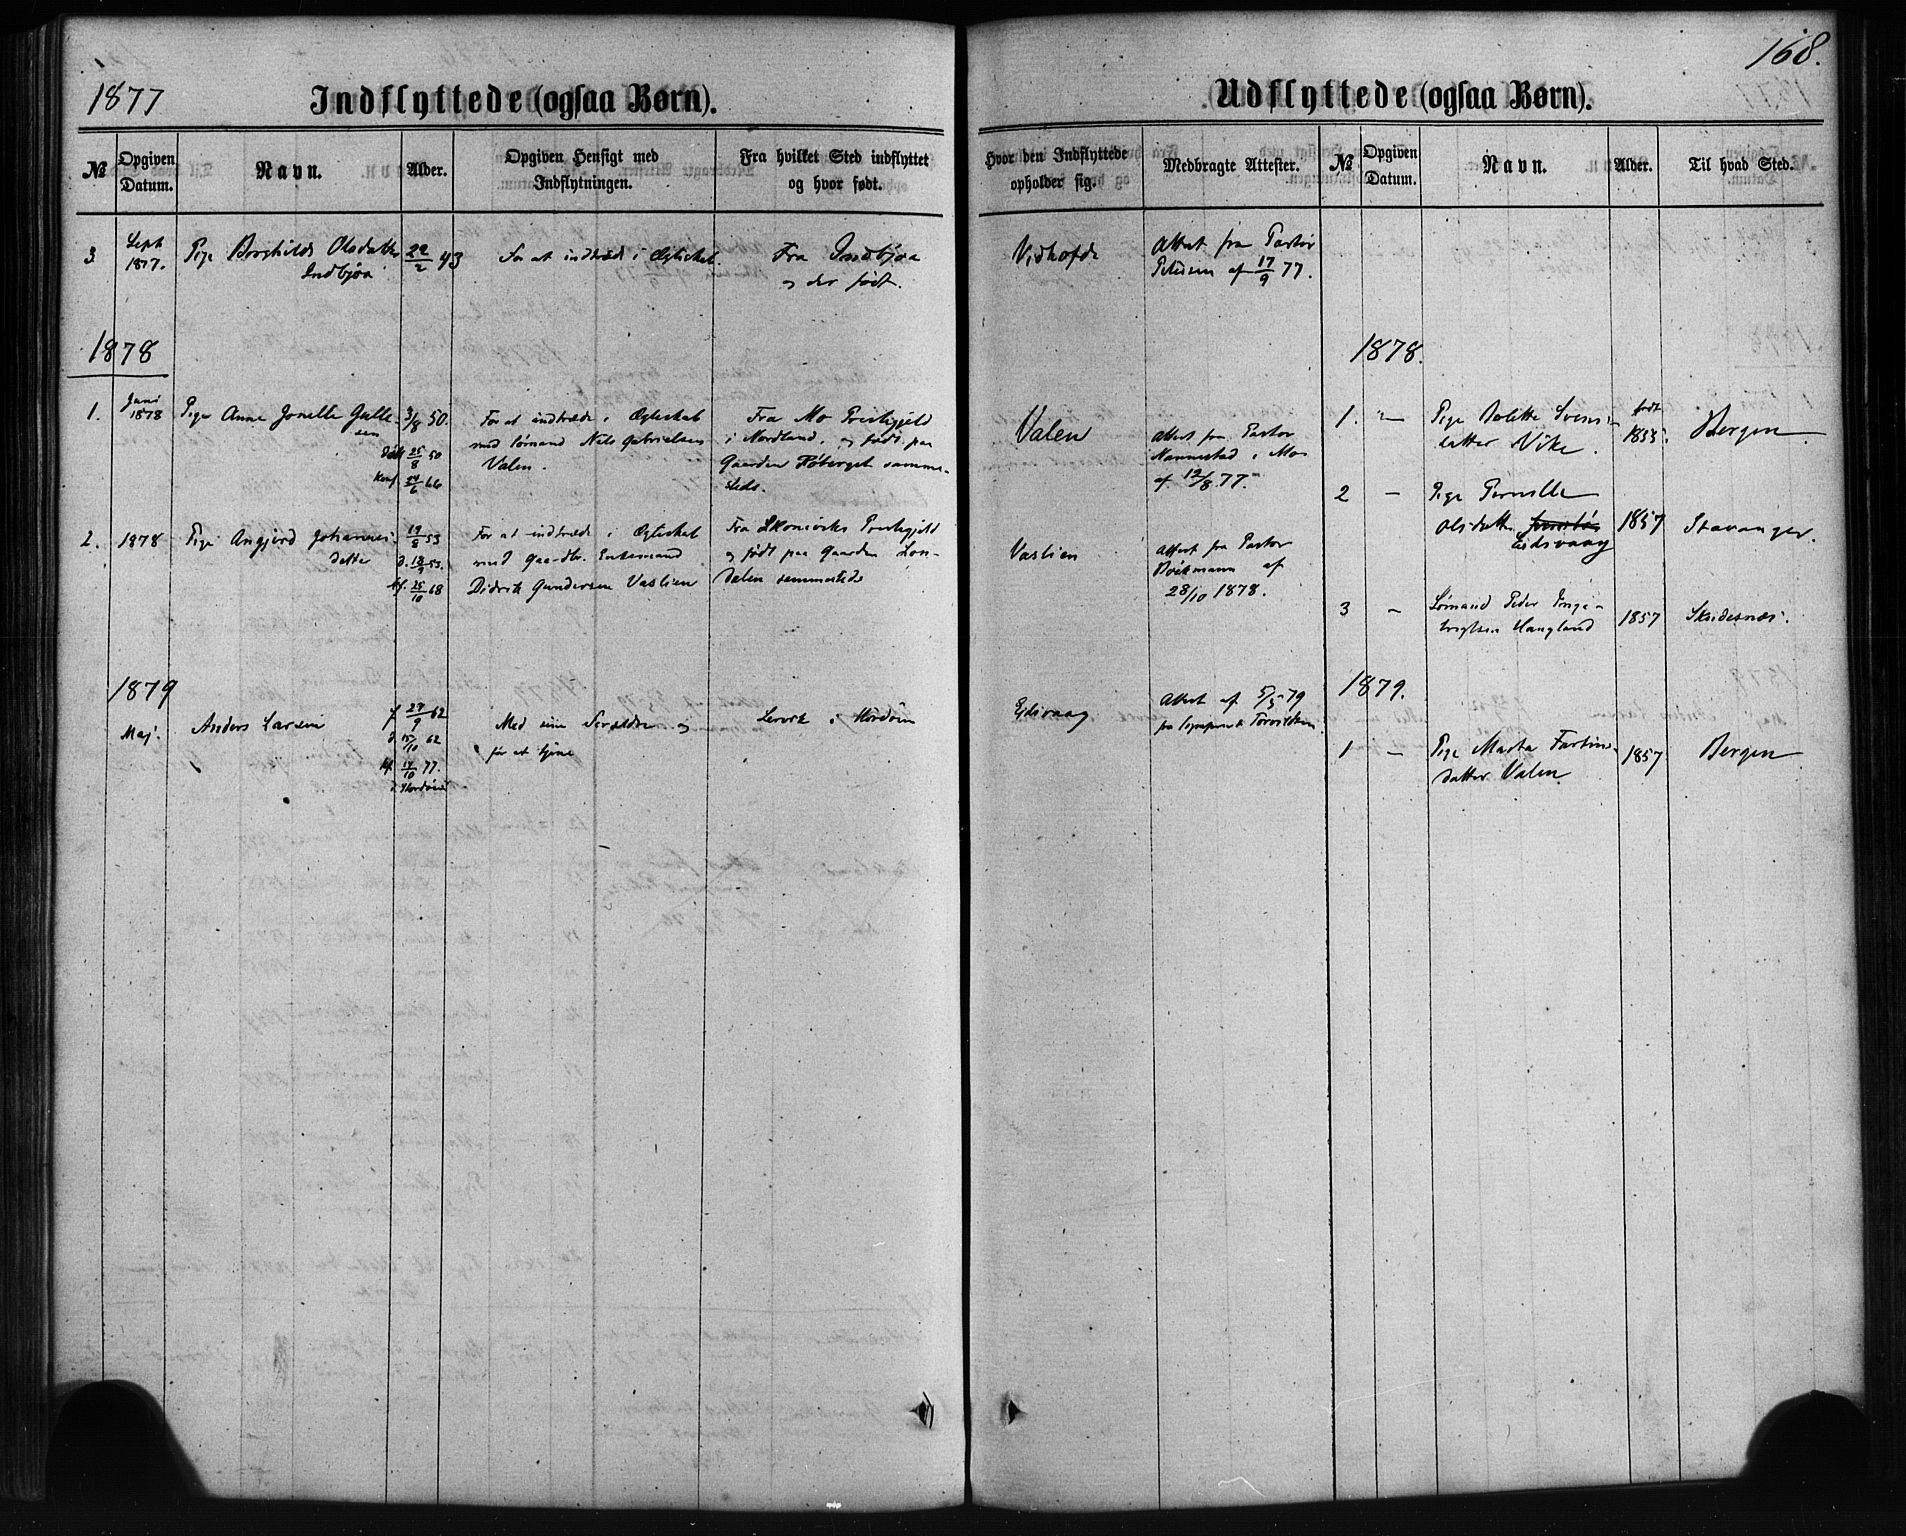 168.
1877
Indflyttede (ogsaa Børn).
Udflyttede (ogsaa Børn).
№
Opgiven Datum.
Navn.
Alder.
Opgiven Hensigt med
Indflytningen.
Fra hvilket Sted indflyttet
og hvor født.
Hvor den Indflyttede
opholder sig.
Medbragte Attester.
№
Opgiven Datum.
Navn.
Alder.
Til hvad Sted.
3
Sept
1877.
Pige Borghild Olsdatter
Indbjoa
22/2 43
For at indtræde i Ægteskab.
Fra Indbjoa
og der født.
Attest fra Pastor
Petersen af 17/9 77.
1878
1.
Juni
1878
Pige Anne Jonelle Gulle-
sen
3/8 50.
Døbt 25/8 50
Konf. 24/6 66
For at indtræde i Ægteskab
med Sømand Nils Gabrielsen
Valen.
Fra Mo Prestegjeld
i Nordland, og født paa
Gaarden samme-
steds.
Valen
Attest fra Pastor
Nannestad i Mo
af 12/8 77.
2.
1878
Pige Angjerd Johannes-
datter
19/8 53
d. 18/9 53.
Kf. 25/10 68
For at indtræde i Ægteskab
med Gaardbr. Enkemand
Didrik Gundersen Vaslien
Fra Skoneviks Prestegjeld
og født paa Gaarden Lon-
dalen sammesteds
Vaslien
Attest fra Pastor
af
28/10 1878.
1879
Maj.
Anders Larsen
f. 27/9 62
d. 15/10 62
Kf. 14/10 77.
For at tjene
Med sine Forældre og
Lervik i Stordøen
Eidsvaag
Attest af 5/5 79
1878.
1. "
Pige Dolette Svens-
datter Vike.
født
1855.
Bergen
2 -
Pige Pernille
Olsdatter
Eidsvaag
1857
Stavanger.
3 -
Sømand Peder Inge-
brigtsen Haugland
1857
Skudesnæs.
1879.
1 -
Pige Marta Fartins-
datter Valen
1857
Bergen